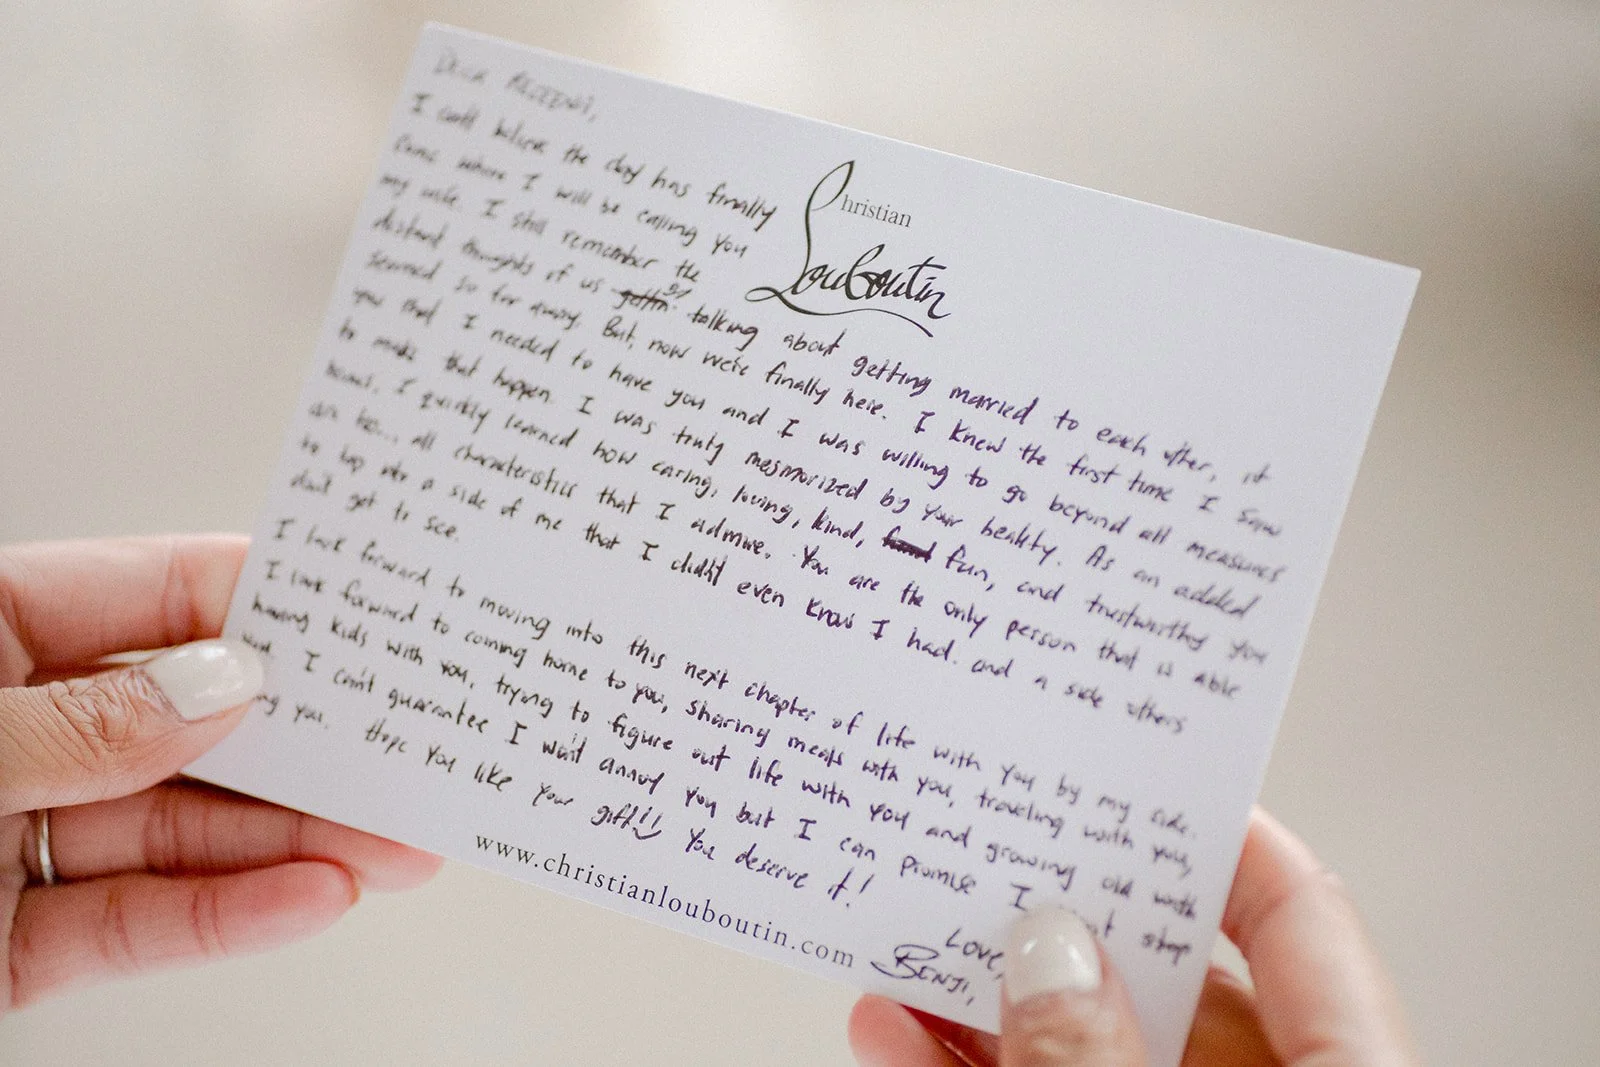 I can't believe the day has finally
come where I will be calling you
my wife. I still remember the
distant thoughts of us talking about getting married to each other, it
seemed so far away. But, now we're finally here. I knew the first time I saw
you that I needed to have you and I was willing to go beyond all measures
to make that happen. I was truly mesmorized by your beauty. As an added
bonus, I quickly learned how caring, loving, kind, fun, and trustworthy you
are too... all characteristics that I admire. You are the only person that is able
to tap into a side of me that I didn't even know I had. and a side others
don't get to see.
I look forward to moving into this next chapter of life with you by my side.
I look forward to coming home to you, sharing meals with you, traveling with you,
having kids with you, trying to figure out life with you and growing old with
I can't guarantee I won't annoy you but I can promise I stop
you. Hope you like your gift!! You deserve it!
Love,
BENJI,
Christian
Louboutin
www.christianlouboutin.com